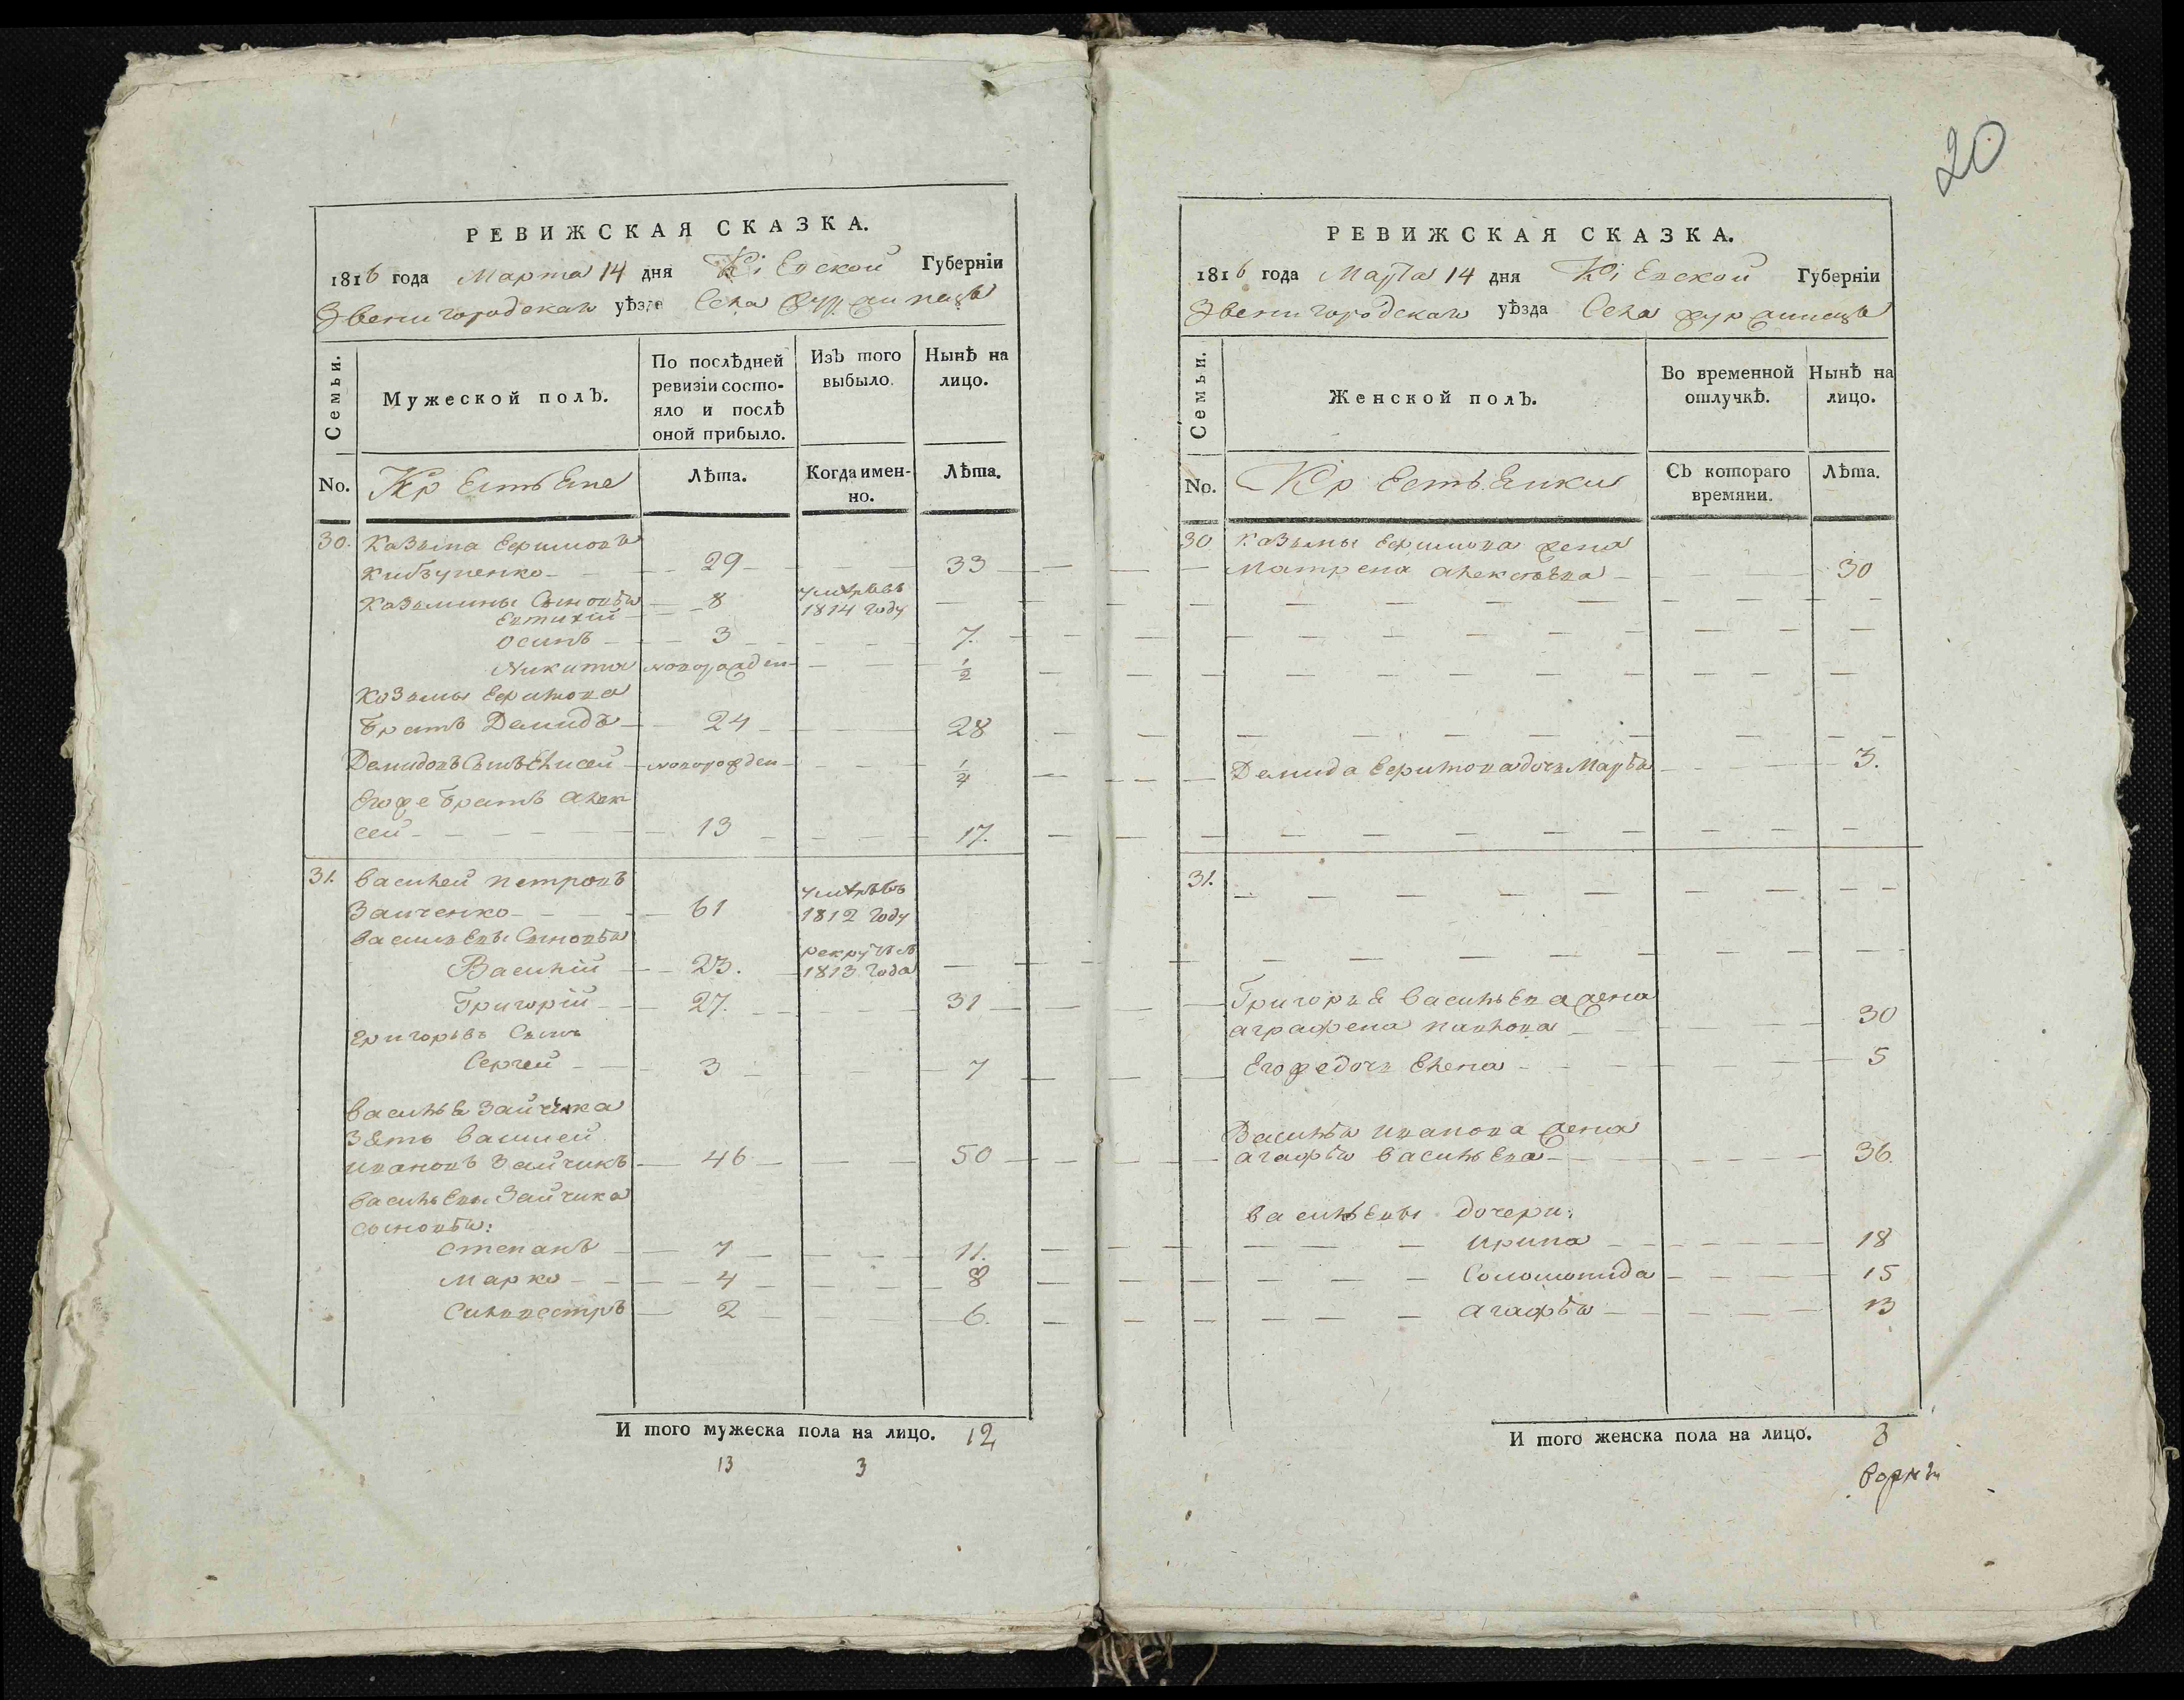 20
РЕВИЖСКАЯ СКАЗКА.
1816 года Марта 14 дня Кіевской Губерніи
Звенигородскаго уѣзда Села Журжинецъ
Семьи.
Мужеской полъ.
По послѣдней ревизіи состо-
яло и послѣ
оной прибыло.
Изъ того
выбыло.
Нынѣ на
лицо.
No.
Крестьяне
Лѣта.
Когда имен-
но.
Лѣта.
30. Козьма Ефимовъ
29 33
Козьмины Сыновья
Евтихій 8 умре въ 1814 году
Осипъ 3 7.
Никита новорожден 1/2
Козьмы Ефимова
братъ Демидъ 24 28
Демидовъ Сынъ Елисей новорожден 1/4
Егоже братъ Алек
сей 13 17.
31. Василей Петровъ
Заиченко 61 умре въ 1812 году
Васильевы Сыновья
Василій 23. рекрут 1813 года
Григорій 27. 31
Григорьевъ Сынъ
Сергей 3 7
Василья Зайчика
зять Василей
Ивановъ Зайчикъ 46 50
Васильевы Зайчика
сыновья:
Степанъ 7 11.
Марко 4 8
Силвестръ 2 6.
И того мужеска пола на лицо. 12
13 3
РЕВИЖСКАЯ СКАЗКА.
1816 года Марта 14 дня Кіевской Губерніи
Звенигородскаго уѣзда Села Журжинецъ
Семьи.
Женской полъ.
Во временной
отлучкѣ.
Нынѣ на
лицо.
No.
Крестьянки
Съ котораго
времяни.
Лѣта.
30 Козьмы Ефимова жена
Матрена Алексѣева 30
Демида Ефимова дочь Марья 3.
31.
Григорья Васильева жена
Аграфена Павлова 30
Егоже дочь Елена 5
Василья Иванова жена
Агафья Васильева 36.
Васильевы дочери:
Ирина 18
Соломонида 15
Агафья 13
И того женска пола на лицо. 8